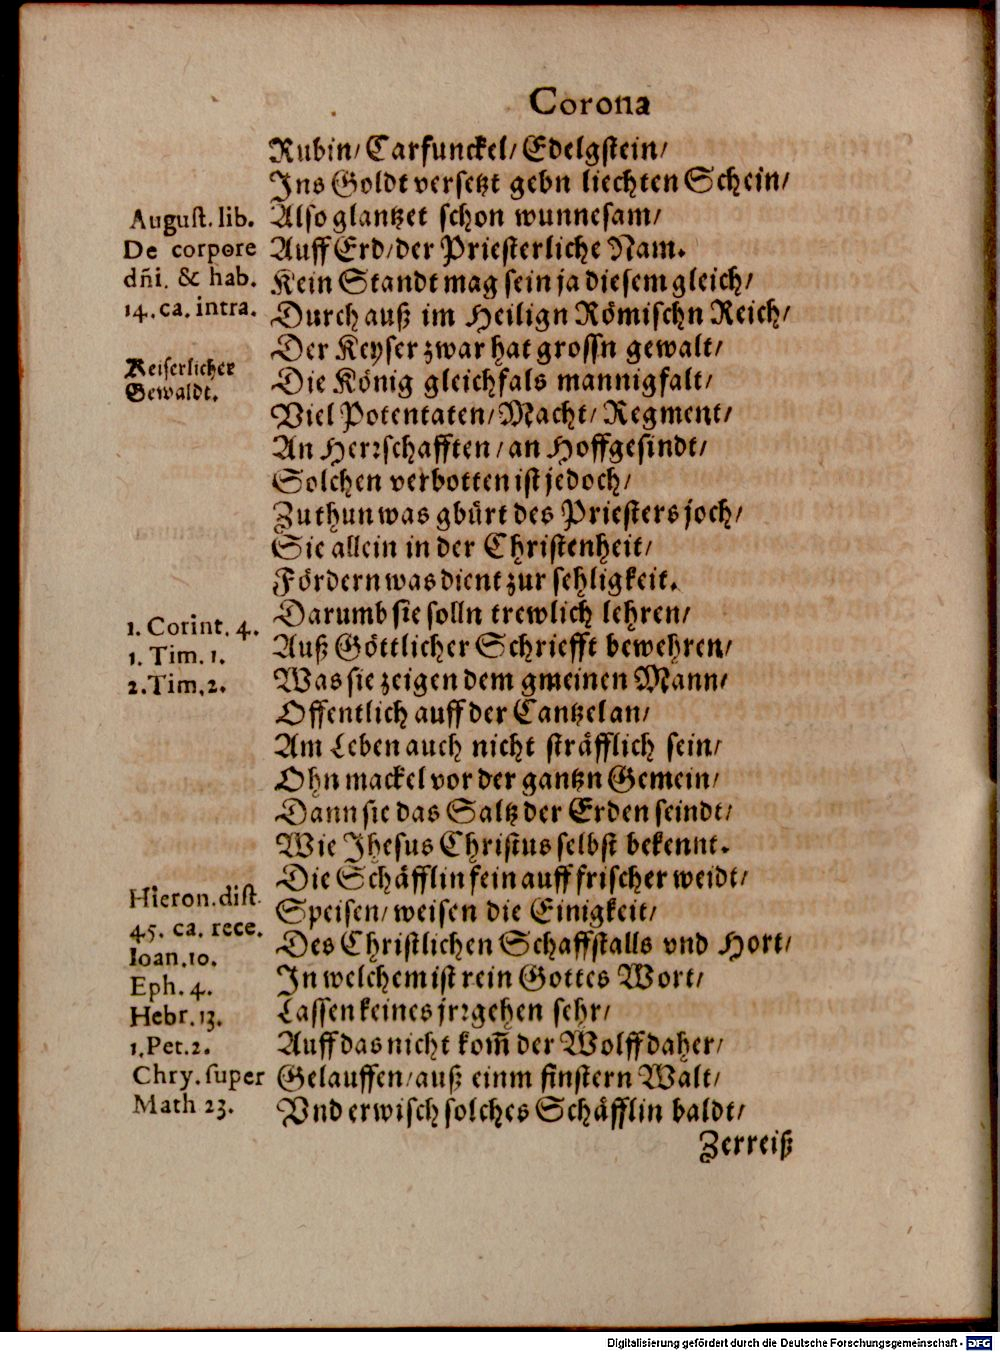 Corona
Rubin/ Carfunckel/ Edelgstein/
Ins Goldt versetzt gebn liechten Schein/
August. lib. Also glantzet schon wunnesam/
De corpore Auff Erd/ der Priesterliche Nam.
dñi. & hab. Kein Standt mag sein ja diesem gleich/
14. ca. intra. Durch auß im Heilign Römischn Reich/
Der Keyser zwar hat grossn gewalt/
Keiserlicher
Gewaldt.
Die König gleichfals mannigfalt/
Viel Potentaten/ Macht/ Regment/
An Herrschafften/ an Hoffgesindt/
Solchen verbotten ist jedoch/
Zu thun was gbürt des Priesters joch/
Sie allein in der Christenheit/
Fördern was dient zur sehligkeit.
Darumb sie solln trewlich lehren/
1. Corint. 4.
Auß Göttlicher Schriefft bewehren/
1. Tim. 1.
2. Tim. 2. Was sie zeigen dem gmeinen Mann/
Offentlich auff der Cantzel an/
Am Leben auch nicht sträfflich sein/
Ohn mackel vor der gantzn Gemein/
Dann sie das Saltz der Erden seindt/
Wie Jhesus Christus selbst bekennt.
Die Schäfflin fein auff frischer weidt/
Hieron. dist. Speisen/ weisen die Einigkeit/
45. ca. rece. Des Christlichen Schaffstalls vnd Hort/
Ioan. 10.
Eph. 4. In welchem ist rein Gottes Wort/
Hebr. 13. Lassen keines jrrgehen sehr/
1. Pet. 2. Auff das nicht kom̃ der Wolff daher/
Chry. super Gelauffen/ auß einm finstern Walt/
Math 23. Vnd erwisch solches Schäfflin baldt/
Zerreiß
Digitalisierung gefördert durch die Deutsche Forschungsgemeinschaft - DFG